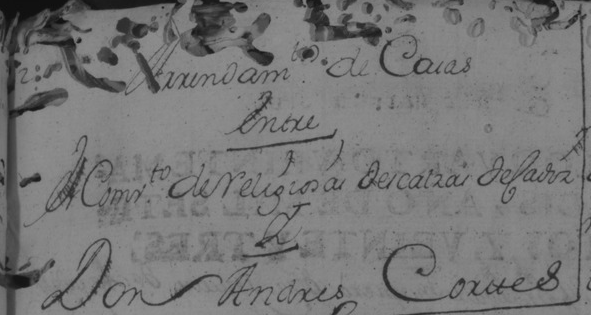 Arrendam.to de Casas
Entre
el Comv.to de religiosas descalzas de
Y
Don Andres Cortes